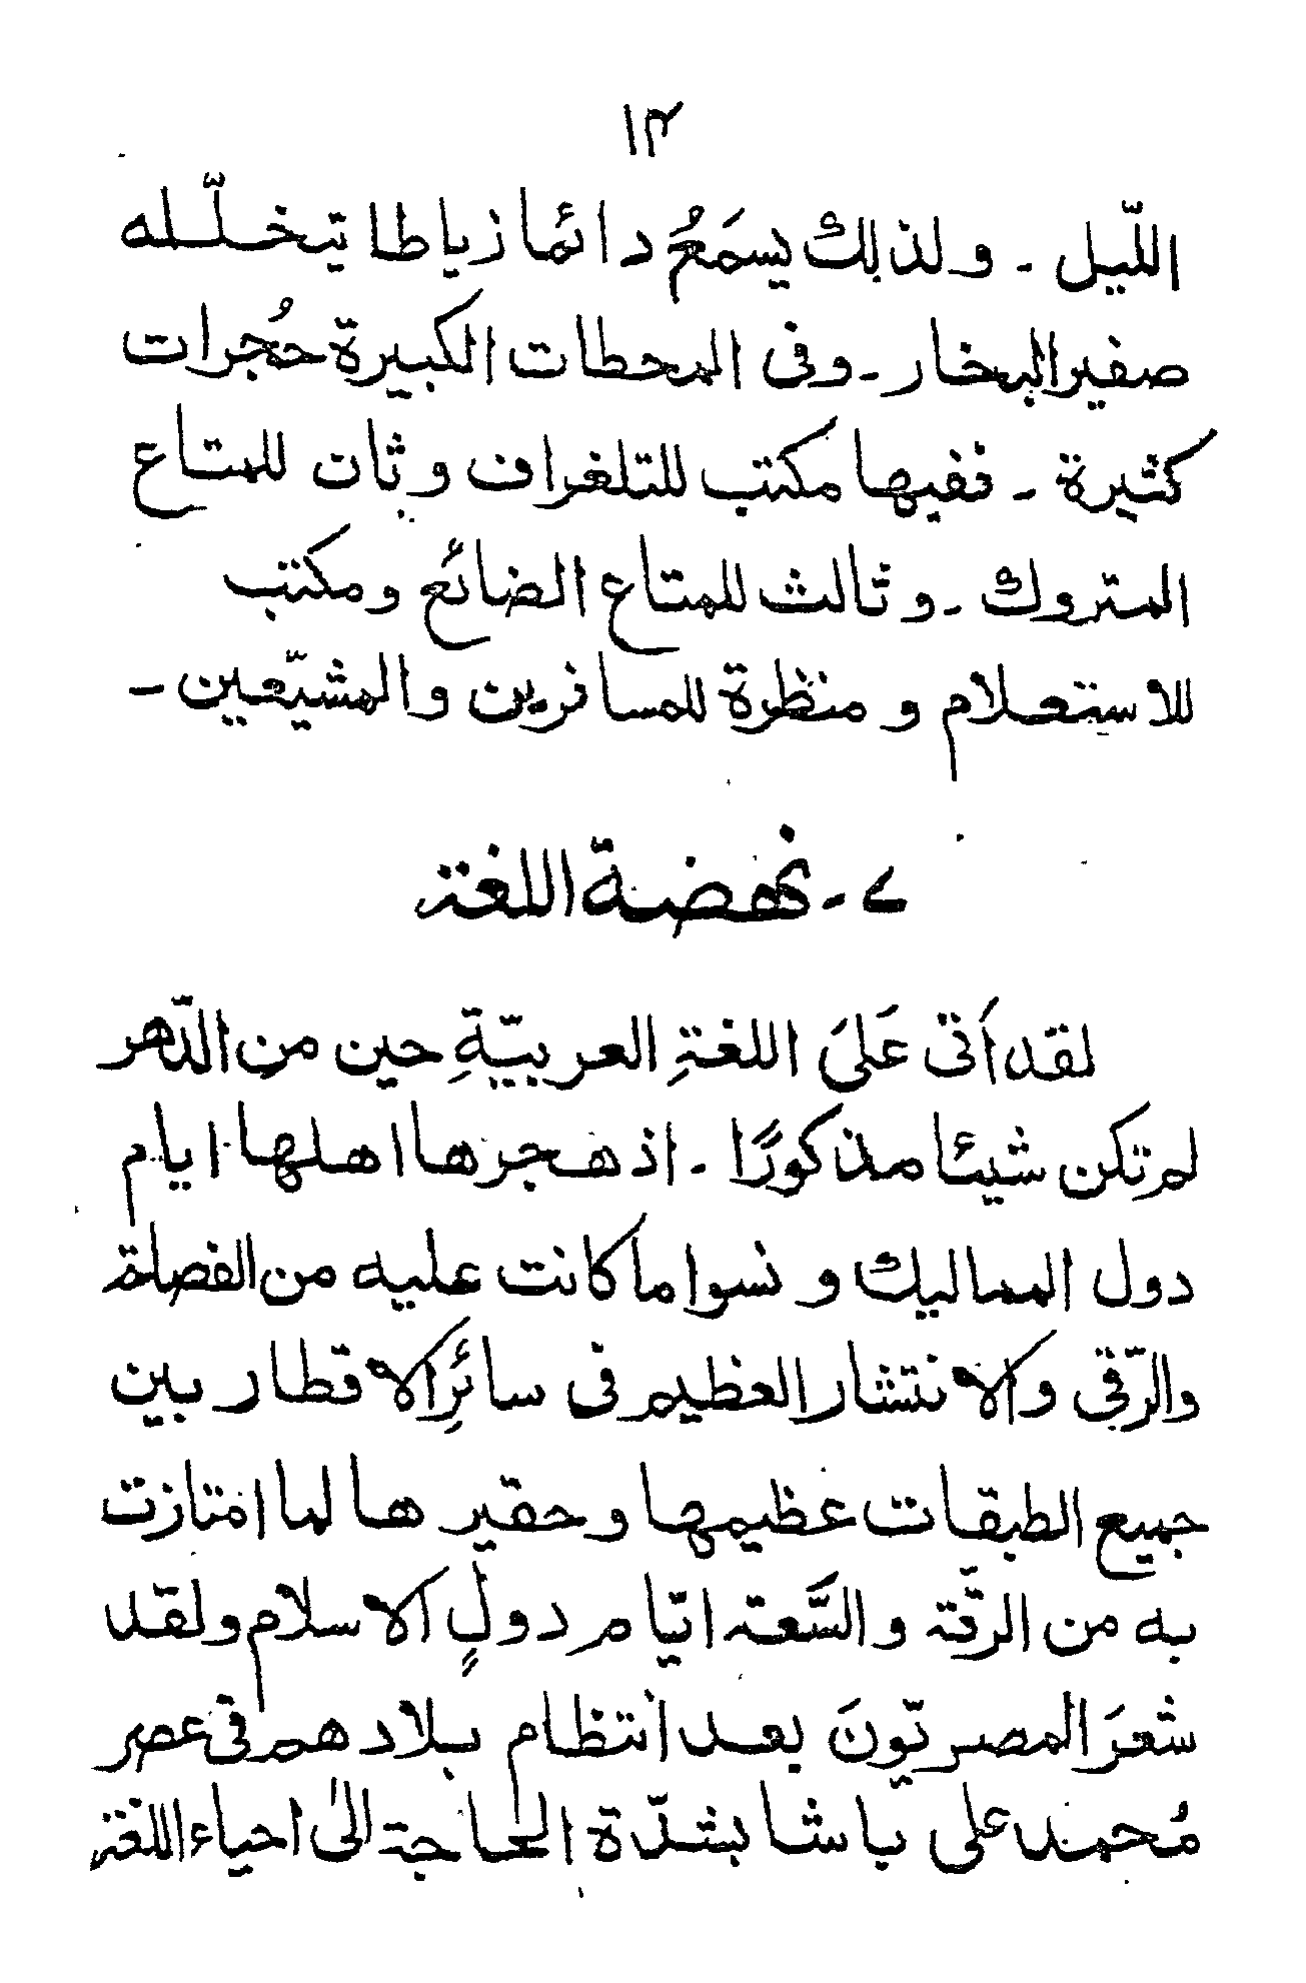 ۱۴
اللّيل ـ ولذلك يسمَعُ دائما زياطا يتخلّله
صفير البخار ـ وفى المحطات الكبيرة حُجرات
كثيرة ـ ففيها مكتب للتلغراف وثان للمتاع
المتروك ـ وثالث للمتاع الضائع ومكتب
للاستعلام ومنظرة للمسافرين والمشيّعين ـ
۷ ـ نهضة اللغة
لقد أَتى عَلىَ اللغةِ العربيّةِ حين من الدّهر
لم تكن شيئا مذكورًا ـ اذ هجرها اهلها ايام
دول المماليك ونسوا ما كانت عليه من الفصاحة
والرّقي والانتشار العظيم فى سائرِ الاقطار بين
جميع الطبقات عظيمها وحقيرها لما امتازت
به من الرقّة والسَّعة ايّام دولِ الاسلام ولقد
شعرَ المصريّونَ بعد انتظام بلادهم فى عصر
مُحمد على باشا بشدّة الحاجة الىٰ احياء اللغة